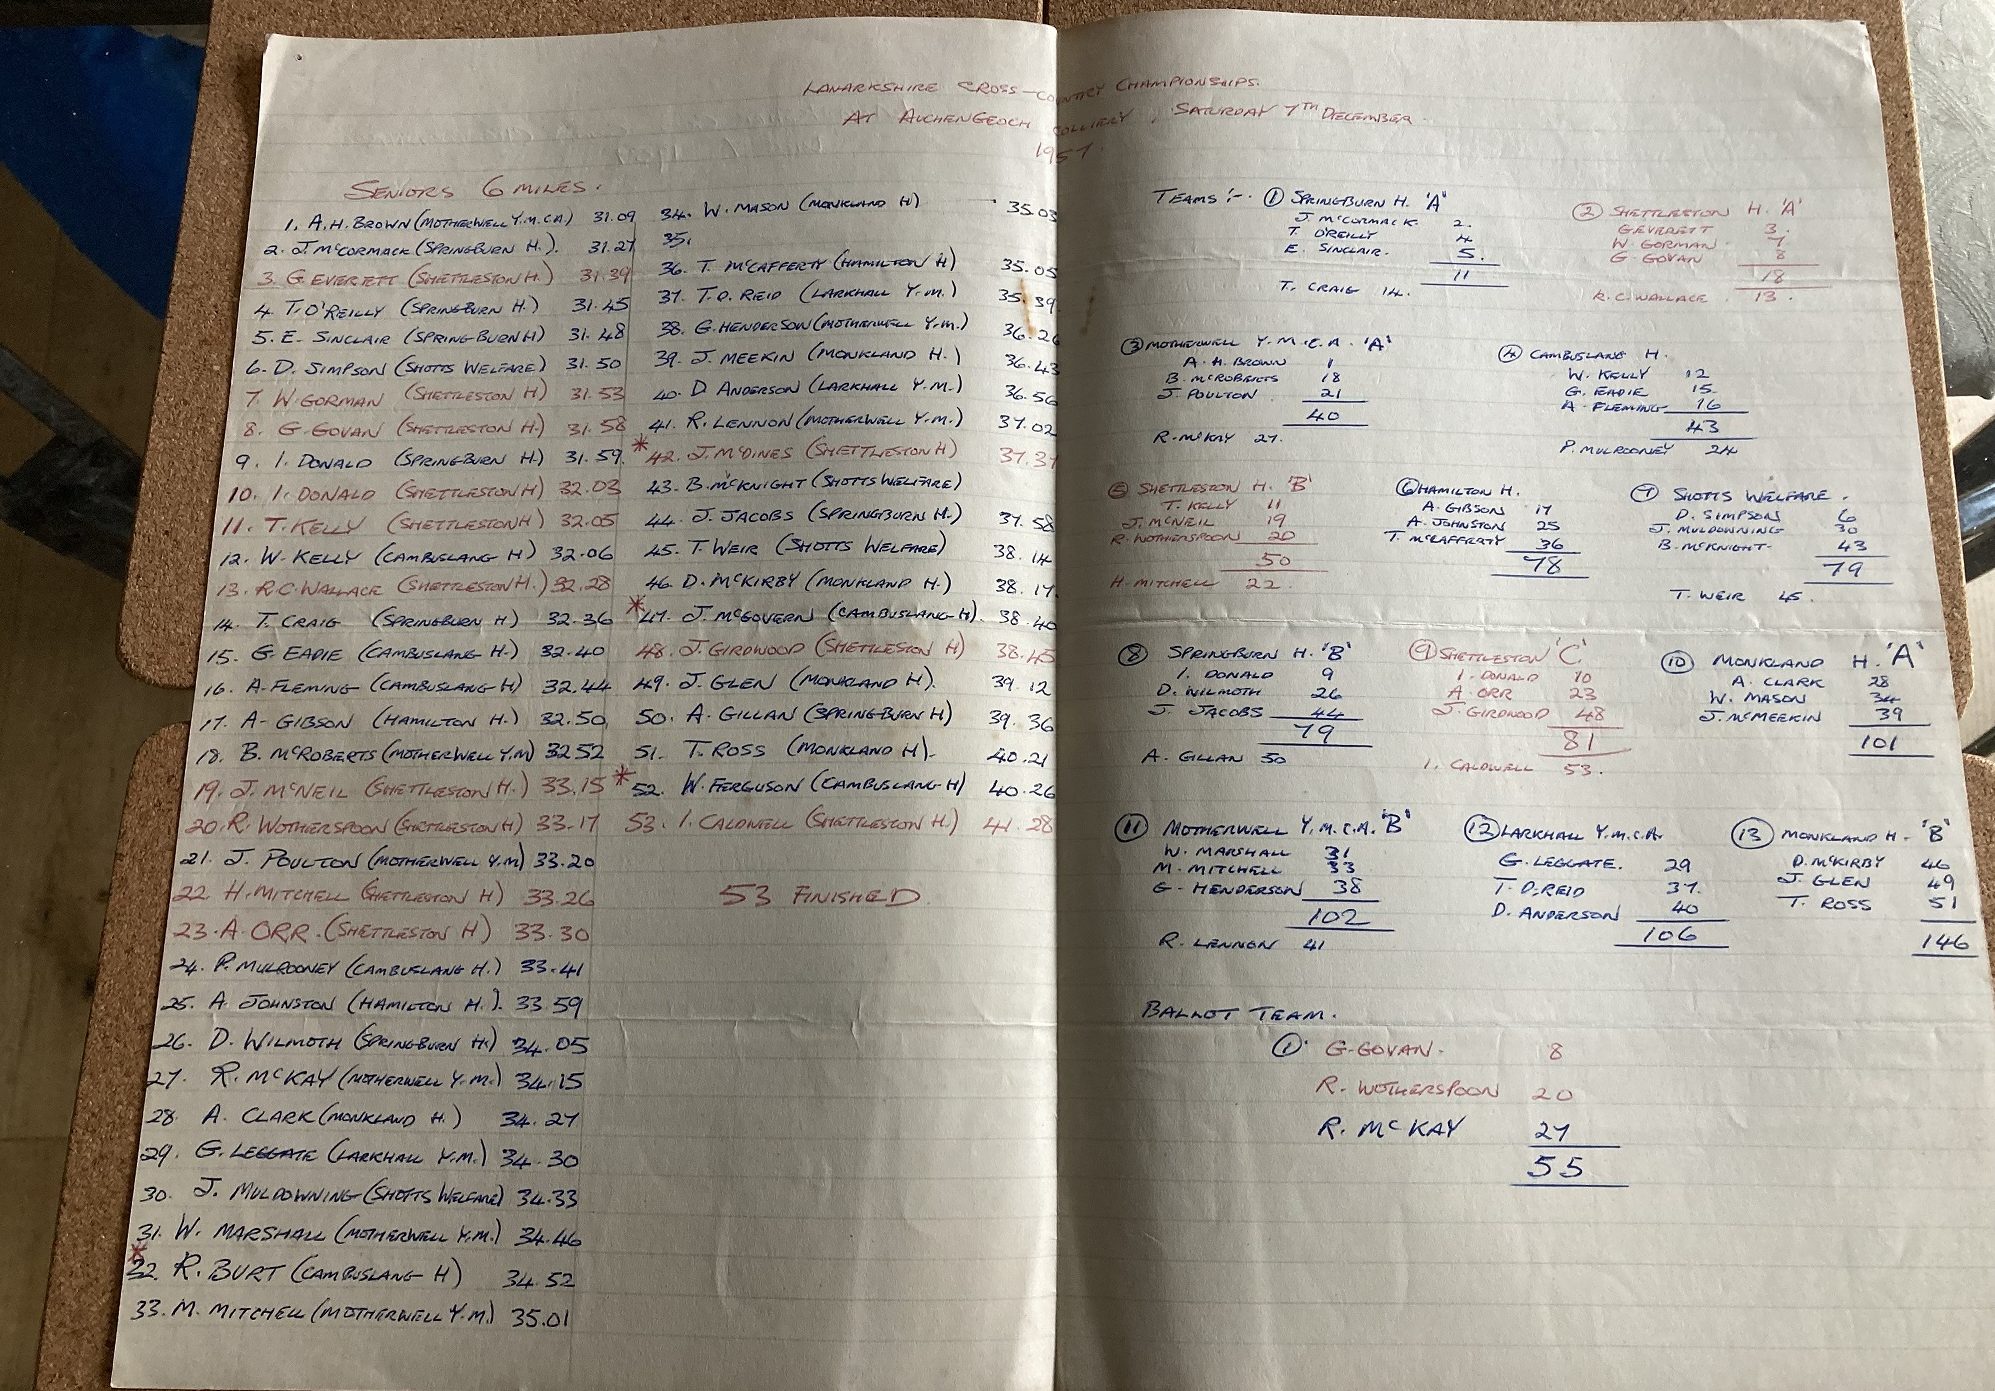 LANARKSHIRE CROSS-COUNTRY CHAMPIONSHIPS.
AT AUCHENGEOCH COLLIERY, SATURDAY 7TH DECEMBER
1957.
SENIORS 6 MILES.
1. A.H. BROWN (MOTHERWELL Y.M.CA) 31.09
2. J. McCORMACK (SPRINGBURN H.). 31.27
3. G. EVERETT (SHETTLESTON H.) 31.39
4. T. O'REILLY (SPRINGBURN H.) 31.45
5. E. SINCLAIR (SPRINGBURN H) 31.48
6. D. SIMPSON (SHOTTS WELFARE) 31.50
7. W. GORMAN (SHETTLESTON H) 31.53
8. G. GOVAN (SHETTLESTON H.) 31.58
9. I. DONALD (SPRINGBURN H.) 31.59.
10. I. DONALD (SHETTLESTON H) 32.03
11. T. KELLY (SHETTLESTON H) 32.05
12. W. KELLY (CAMBUSLANG H) 32.06
13. R.C. WALLACE (SHETTLESTON H.) 32.28
14. T. CRAIG (SPRINGBURN H) 32.36
15. G. EADIE (CAMBUSLANG H.) 32.40
16. A. FLEMING (CAMBUSLANG H) 32.44
17. A. GIBSON (HAMILTON H.) 32.50
18. B. McROBERTS (MOTHERWELL Y.M) 32.52
19. J. McNEIL (SHETTLESTON H.) 33.15
20. R. WOTHERSPOON (SHETTLESTON H) 33.17
21. J. POULTON (MOTHERWELL Y.M) 33.20
22. H. MITCHELL (SHETTLESTON H) 33.26
23. A. ORR. (SHETTLESTON H) 33.30
24. P. MULROONEY (CAMBUSLANG H.) 33.41
25. A. JOHNSTON (HAMILTON H.). 33.59
26. D. WILMOTH (SPRINGBURN H.) 34.05
27. R. McKAY (MOTHERWELL Y.M.) 34.15
28. A. CLARK (MONKLAND H.) 34.27
29. G. LEGGATE (LARKHALL Y.M.) 34.30
30. J. MULDOWNING (SHOTTS WELFARE) 34.33
31. W. MARSHALL (MOTHERWELL Y.M.) 34.46
* 32. R. BURT (CAMBUSLANG H) 34.52
33. M. MITCHELL (MOTHERWELL Y.M.) 35.01
34. W. MASON (MONKLAND H) 35.03
35.
36. T. McCAFFERTY (HAMILTON H) 35.05
37. T.D. REID (LARKHALL Y.M.) 35.39
38. G. HENDERSON (MOTHERWELL Y.M.) 36.26
39. J. MEEKIN (MONKLAND H.) 36.43
40. D ANDERSON (LARKHALL Y.M.) 36.56
41. R. LENNON (MOTHERWELL Y.M.) 37.02
* 42. J. McDINES (SHETTLESTON H) 37.37
43. B. McKNIGHT (SHOTTS WELFARE)
44. J. JACOBS (SPRINGBURN H.) 37.58
45. T. WEIR (SHOTTS WELFARE) 38.14
46. D. McKIRBY (MONKLAND H.) 38.17.
* 47. J. McGOVERN (CAMBUSLANG H). 38.40
48. J. GIRDWOOD (SHETTLESTON H) 38.45
49. J. GLEN (MONKLAND H). 39.12
50. A. GILLAN (SPRINGBURN H) 39.36
51. T. ROSS (MONKLAND H). 40.21
* 52. W. FERGUSON (CAMBUSLANG H) 40.26
53. I. CALDWELL (SHETTLESTON H.) 41.28
53 FINISHED.
TEAMS :- 1 SPRINGBURN H. 'A'
J. McCORMACK. 2.
T. O'REILLY 4
E. SINCLAIR. 5.
11
T. CRAIG 14.
2 SHETTLESTON H. 'A'
G. EVERETT 3.
W. GORMAN 7
G GOVAN 8
18
R.C. WALLACE. 13.
3 MOTHERWELL Y.M.C.A. 'A'
A.H. BROWN 1
B. McROBERTS 18
J. POULTON 21
40
R. McKAY 27.
4 CAMBUSLANG H.
W. KELLY 12
G. EADIE 15.
A. FLEMING 16
43
P. MULROONEY 24
5 SHETTLESTON H. 'B'
T. KELLY 11
J. McNEIL 19
R. WOTHERSPOON 20
50
H. MITCHELL 22.
6 HAMILTON H.
A. GIBSON 17
A. JOHNSTON 25
T. McCAFFERTY 36
78
7 SHOTTS WELFARE.
D. SIMPSON 6
J. MULDOWNING 30
B. McKNIGHT 43
79
T. WEIR 45.
8 SPRINGBURN H. 'B'
I. DONALD 9
D. WILMOTH 26
J. JACOBS 44
79
A. GILLAN 50
9 SHETTLESTON 'C'
I. DONALD 10
A. ORR 23
J. GIRDWOOD 48
81
I. CALDWELL 53.
10 MONKLAND H. 'A'
A. CLARK 28
W. MASON 34
J. McMEEKIN 39
101
11 MOTHERWELL Y.M.C.A. 'B'
W. MARSHALL 31
M. MITCHELL 33
G. HENDERSON 38
102
R. LENNON 41
12 LARKHALL Y.M.C.A.
G. LEGGATE. 29
T.D. REID 37.
D. ANDERSON 40
106
13 MONKLAND H. 'B'
D. McKIRBY 46
J. GLEN 49
T. ROSS 51
146
BALLOT TEAM.
1. G. GOVAN. 8
R. WOTHERSPOON 20
R. McKAY 27
55